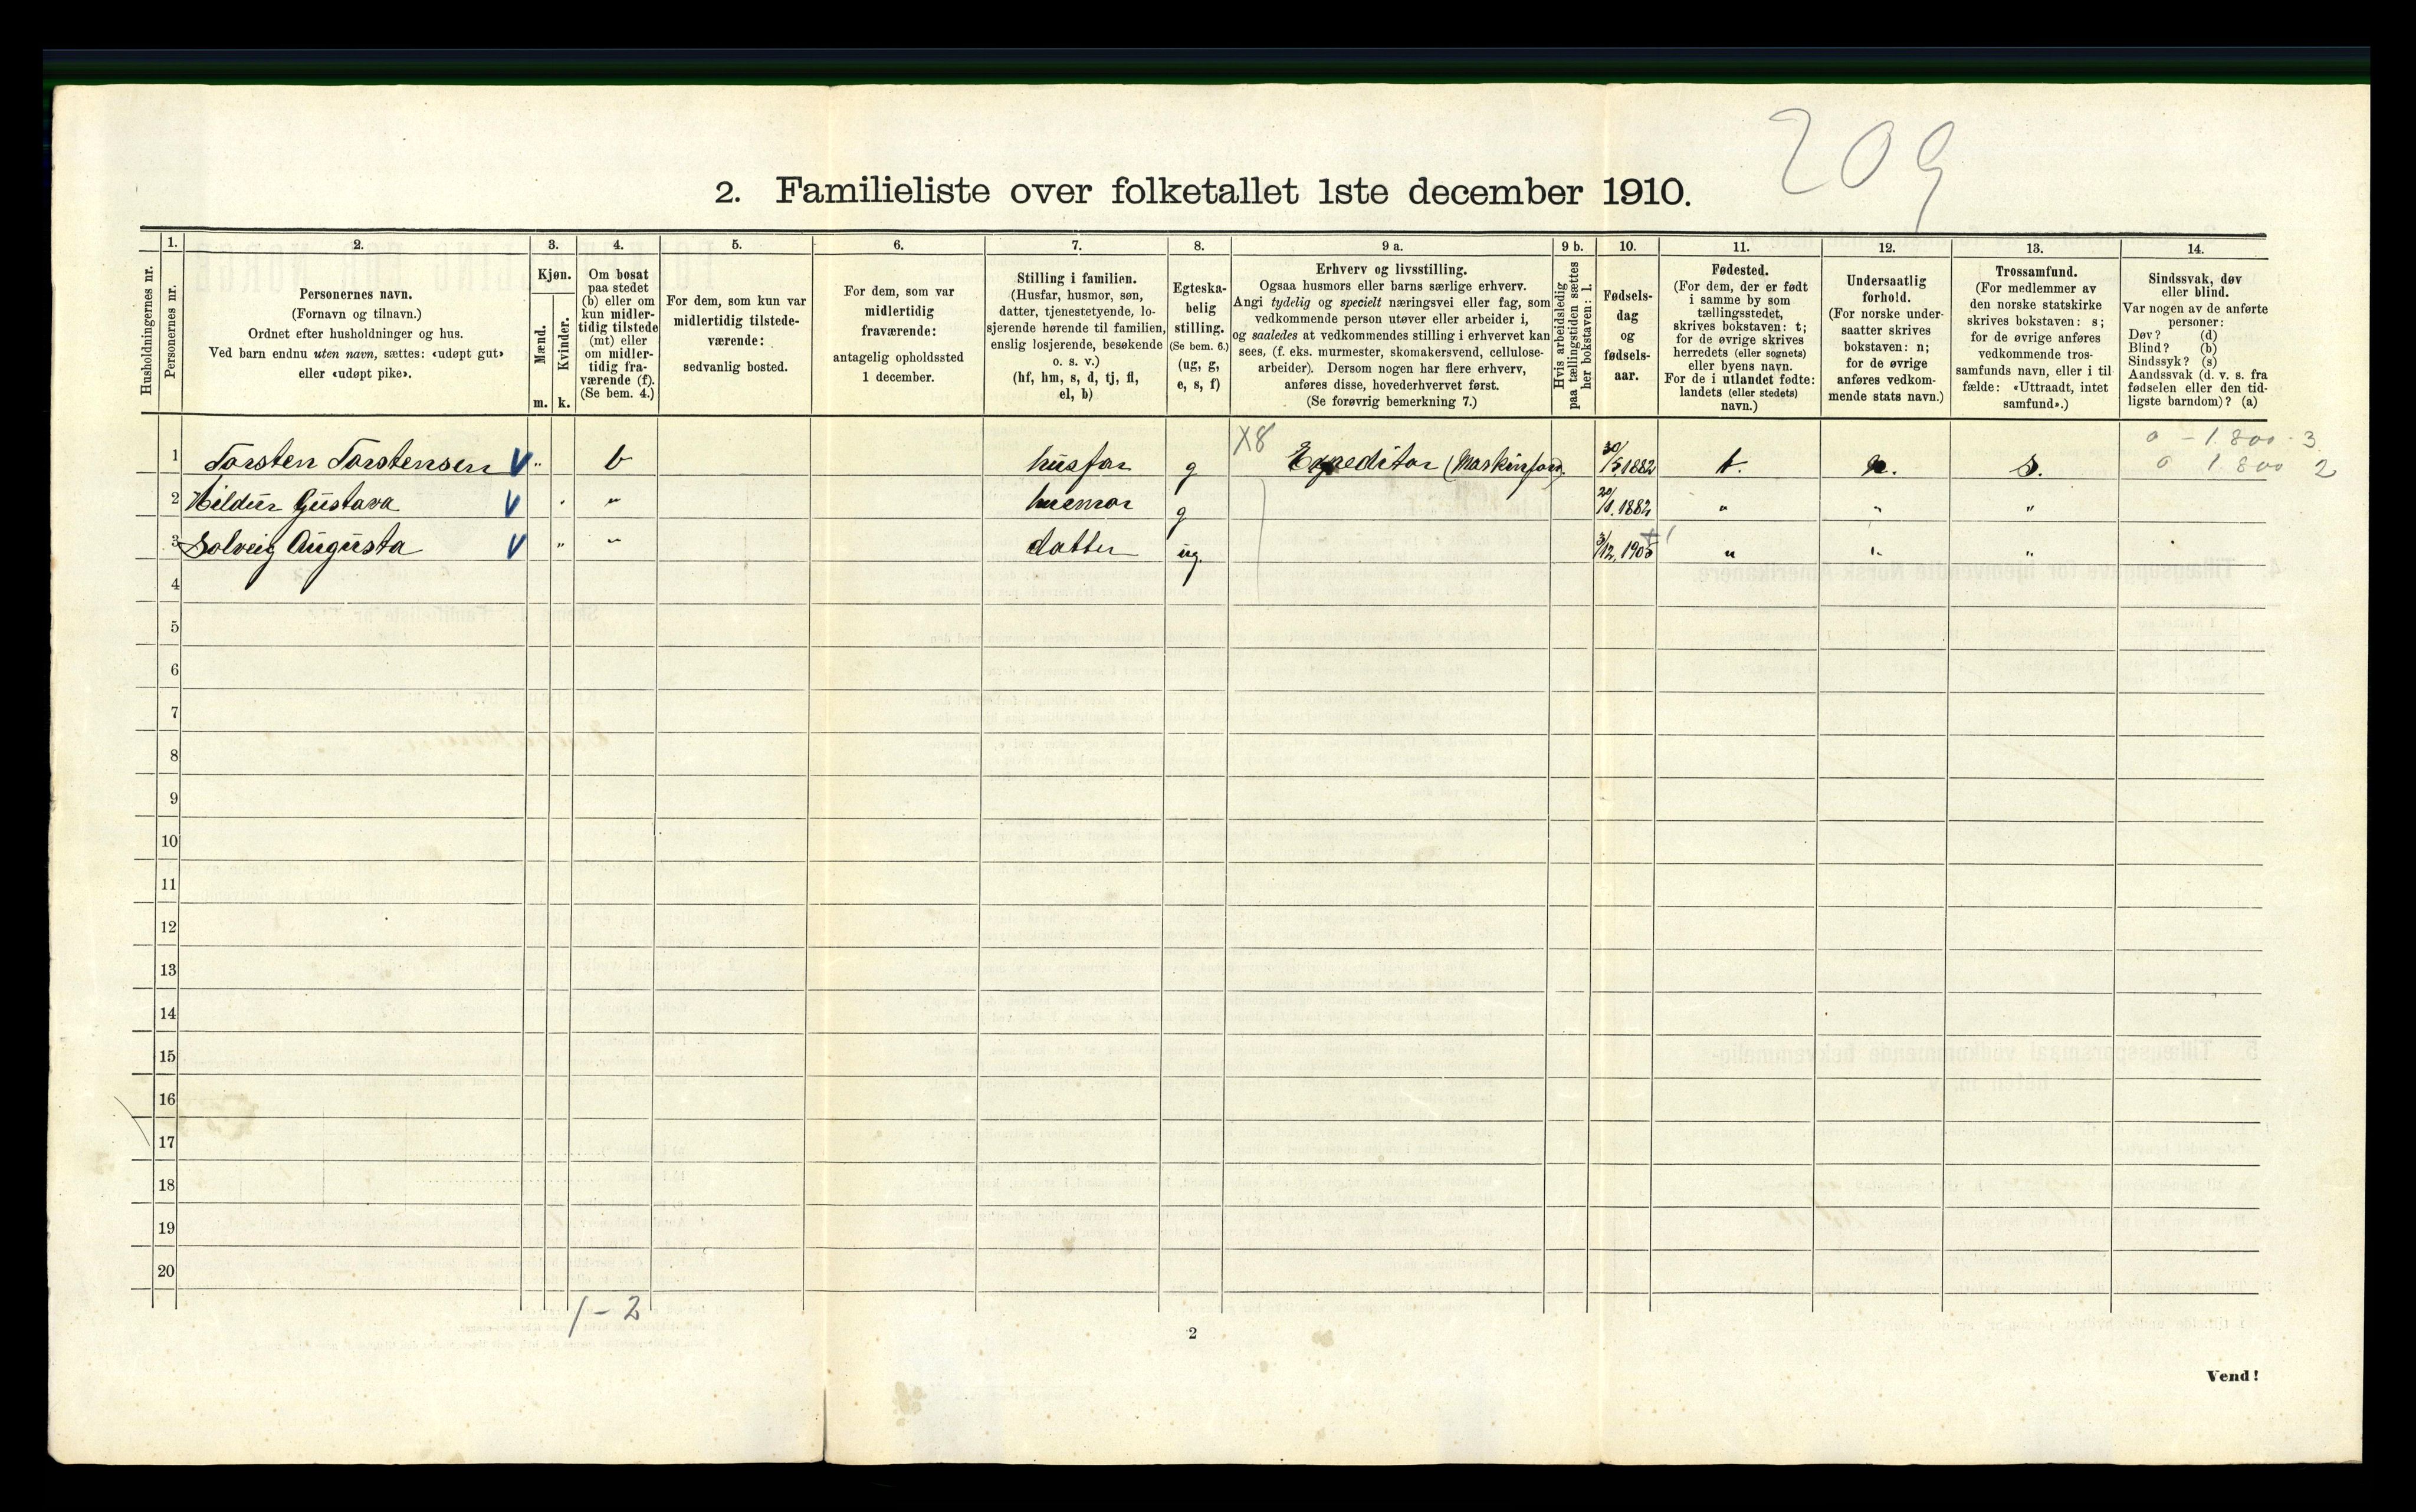 209
2. Familieliste over folketallet 1ste december 1910.
Husholdningernes nr.
1.
Personernes nr.
2.
Personernes navn.
(Fornavn og tilnavn.)
Ordnet efter husholdninger og hus.
Ved barn endnu uten navn, sættes: «udøpt gut»
eller «udøpt pike».
3.
Kjøn.
Mænd.
Kvinder.
m. k.
4.
Om bosat
paa stedet
(b) eller om
kun midler-
tidig tilstede
(mt) eller
om midler-
tidig fra-
værende (f).
(Se bem. 4.)
5.
For dem, som kun var
midlertidig tilstede-
værende:
sedvanlig bosted.
6.
For dem, som var
midlertidig
fraværende:
antagelig opholdssted
1 december.
7.
Stilling i familien.
(Husfar, husmor, søn,
datter, tjenestetyende, lo-
sjerende hørende til familien,
enslig losjerende, besøkende
o. s. v.)
(hf, hm, s, d, tj, fl,
el, b)
8.
Egteska-
belig
stilling.
(Se bem. 6.)
(ug, g,
e, s, f)
9 a.
Erhverv og livsstilling.
Ogsaa husmors eller barns særlige erhverv.
Angi tydelig og specielt næringsvei eller fag, som
vedkommende person utøver eller arbeider i,
og saaledes at vedkommendes stilling i erhvervet kan
sees, (f. eks. murmester, skomakersvend, cellulose-
arbeider). Dersom nogen har flere erhverv,
anføres disse, hovederhvervet først.
(Se forøvrig bemerkning 7.)
9 b.
Hvis arbeidsledig
paa tællingstiden sættes
her bokstaven: l.
10.
Fødsels-
dag
og
fødsels-
aar.
11.
Fødested.
(For dem, der er født
i samme by som
tællingsstedet,
skrives bokstaven: t;
for de øvrige skrives
herredets (eller sognets)
eller byens navn.
For de i utlandet fødte:
landets (eller stedets)
navn.)
12.
Undersaatlig
forhold.
(For norske under-
saatter skrives
bokstaven: n;
for de øvrige
anføres vedkom-
mende stats navn.)
13.
Trossamfund.
(For medlemmer av
den norske statskirke
skrives bokstaven: s;
for de øvrige anføres
vedkommende tros-
samfunds navn, eller i til-
fælde: «Uttraadt, intet
samfund».)
14.
Sindssvak, døv
eller blind.
Var nogen av de anførte
personer:
Døv? (d)
Blind? (b)
Sindssyk? (s)
Aandssvak (d. v. s. fra
fødselen eller den tid-
ligste barndom)? (a)
X8 0 - 1.800 - 3
0 1800 2
1 Torsten Torstensen V " b husfar g Expeditør 30/5 1882 t. n. s.
2 Hildur Gustava V " " husmor g 20/1. 1882 " " "
3 Solveig Augusta V " " datter ug. 3/12, 1905 " " "
4
5
6
7
8
9
10
11
12
13
14
15
16
17
18
19
20
1 - 2
2
Vend!